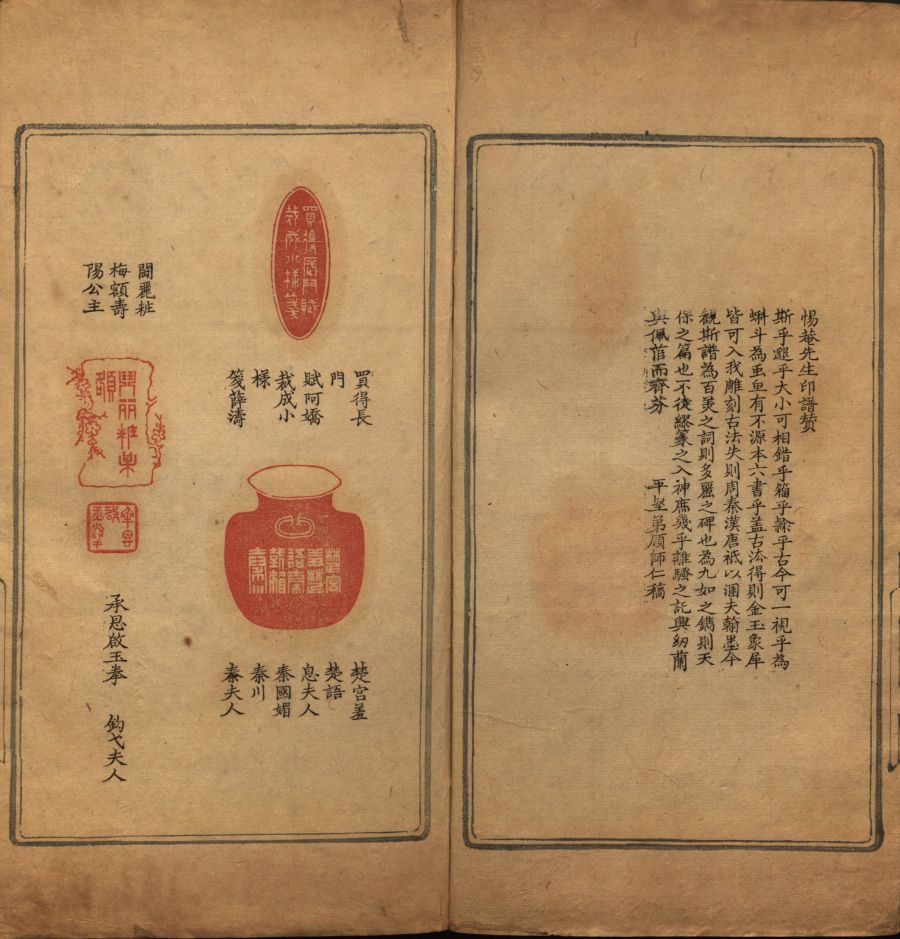 惕菴先生印譜贊
斯乎邈乎大小可相錯乎籀乎隸乎古今可一視乎為
蝌斗為䖝魚有不源本六書乎盖古法得則金玉象犀
皆可入我雕刻古法失則周秦漢唐衹以溷夫翰墨今
觀斯譜為百美之詞則多麗之碑也為九如之鐫則天
保之篇也不徒繆篆之入神庶幾乎離騷之託興紉蘭
與佩茝而齊芬　弟顧師仁稿
買得長門賦
裁成小様箋
買得長
門
賦阿嬌
裁成小
様
箋薛濤
楚宮
羞楚
語秦
國媚
秦川
楚宮羞
楚語
息夫人
秦國媚
秦川
秦夫人
鬬麗粧
梅額壽
陽公主
鬥丽粧某
額
承恩
啟
玉拳
承恩啟玉拳　鈎弋夫人